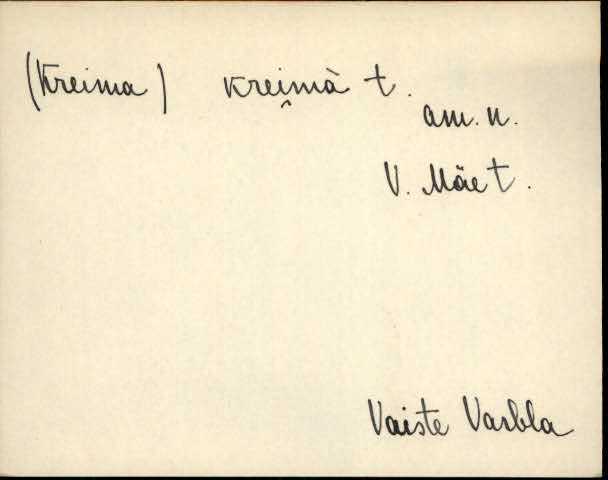 (Kreima) krei̯mà t.
am. n.
V. Mäe t.
Vaiste Varbla